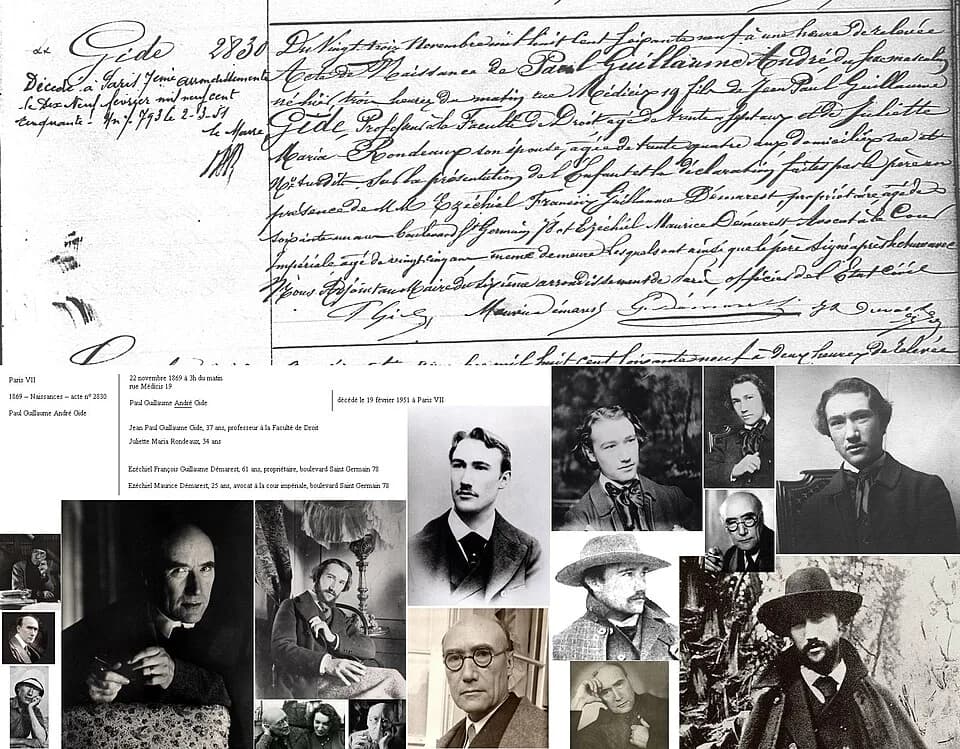 Gide 2830
Décédé à Paris 7ème arrondissement
le dix neuf février mil neuf cent
cinquante-un n° 793 le 2-3-51
le Maire
Du Vingt trois Novembre mil huit cent soixante neuf à une heure de relevée
Acte de Naissance de Paul Guillaume André du sexe masculin
né hier, trois heures du matin rue Médicis 19 fils de Jean Paul Guillaume
Gide, Professeur à la Faculté de Droit agé de trente sept ans et de Juliette
Maria Rondeaux son épouse, agée de trente quatre ans domiciliés rue et
N° susdits. Sur la présentation de l'Enfant et la déclaration faites par le père en
présence de MM Ezéchiel François Guillaume Démarest, propriétaire, agé de
soixante un ans boulevard St Germain 78 et Ezéchiel Maurice Démarest Avocat à la Cour
Impériale agé de vingt cinq ans même demeure Lesquels ont ainsi que le père signé après lecture avec
Nous Adjoint au Maire du sixième arrondissement de Paris officier de l'Etat Civil
P Gide Maurice Démarest G. Démarest
mil huit cent soixante neuf à deux heures de relevée
Paris VII
1869 – Naissances – acte n° 2830
Paul Guillaume André Gide
22 novembre 1869 à 3h du matin
rue Médicis 19
Paul Guillaume André Gide
décédé le 19 février 1951 à Paris VII
Jean Paul Guillaume Gide, 37 ans, professeur à la Faculté de Droit
Juliette Maria Rondeaux, 34 ans
Ezéchiel François Guillaume Démarest, 61 ans, propriétaire, boulevard Saint Germain 78
Ezéchiel Maurice Démarest, 25 ans, avocat à la cour impériale, boulevard Saint Germain 78